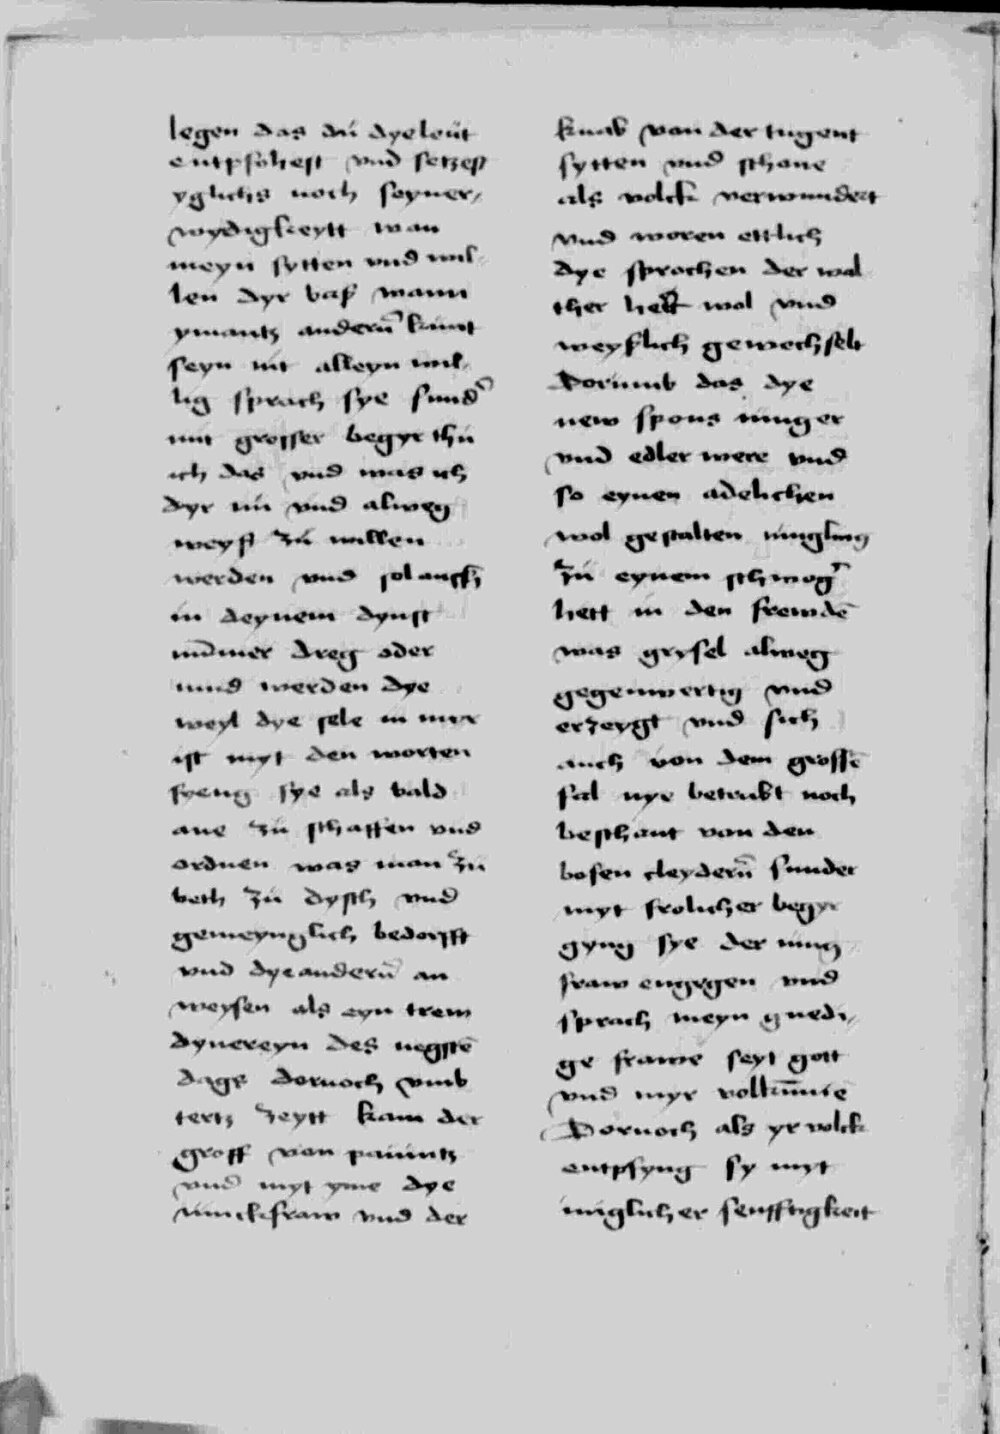 legen das dú dye leút
entpfohest vnd setzest
yglichs noch seyner
wydigkeytt wan
meyn sytten vnd wil
len dyr baß wann
ymantz anderñ kunt
seyn nit alleyn wil
lig sprach sye sund'
mit grosser begyr thú
ich das vnd was ich
dyr nú vnd alweg
weyß zú willen
werden vnd solangk
in deynem dynst
nūmer dreg oder
mud werden dye
weyl dye sele in myr
ist myt den worten
fyeng sye als bald
ane zú schaffen vnd
ordnen was man zú
beth zú dysch vnd
gemeynglich bedorfft
vnd dye anderñ an
weysen als eyn trew
dynereyn des negstē
dags dornoch vmb
tertz zeytt kam der
groff von panúntz
vnd myt yme dye
iunckfraw vnd der
knab von der tugent
sytten vnd schone
als volck verwundert
vnd woren ettlich
dye sprochen der wal
ther hett wol vnd
weyßlich gewechselt
Dorumb das dye
new spons iunger
vnd edler were vnd
so eynen adelichen
wol gestalten iungling
zú eynem schwog'
hett in den frewdē
was grysel alweg
gegenwertig vnd
erzeygt vnd sich
auch von dem grossē
fal nye betrubt noch
beschant von den
bosen cleyderñ sunder
myt frolicher begyr
gyng sye der iung
fraw engegen vnd
sprach meyn gnedi
ge frawe seyt gott
vnd myr volkūmē
Dornoch als yr volck
entpfyng sy myt
iniglicher senfftigkeit